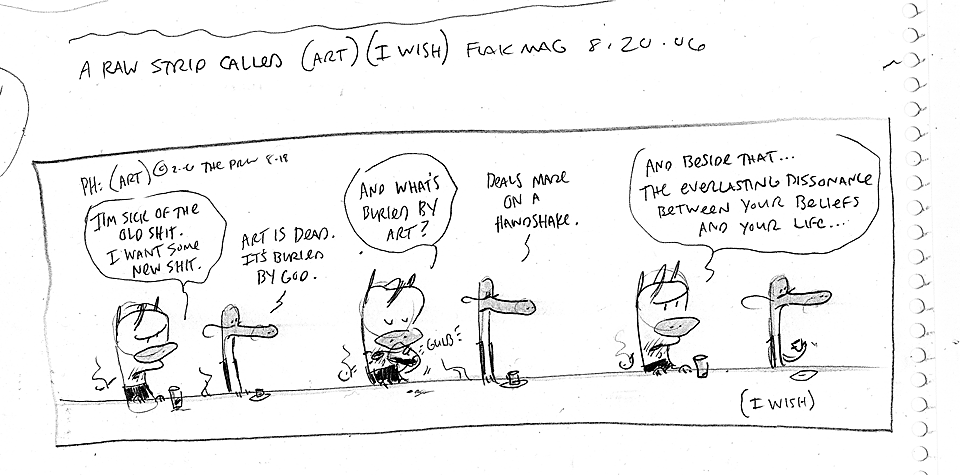 A RAW STRIP CALLED (ART) (I WISH) FLAK MAG 8.20.06
PH: (ART) © THE PRW 8-18
JIM SICK OF THE
OLD SHIT.
I WANT SOME
NEW SHIT.
ART IS DEAD.
IT'S BURIED
BY GOD.
AND WHAT'S
BURIED BY
ART?
GULB
DEALS MADE
ON A
HANDSHAKE.
AND BESIDE THAT...
THE EVERLASTING DISSONANCE
BETWEEN YOUR BELIEFS
AND YOUR LIFE...
(I WISH)